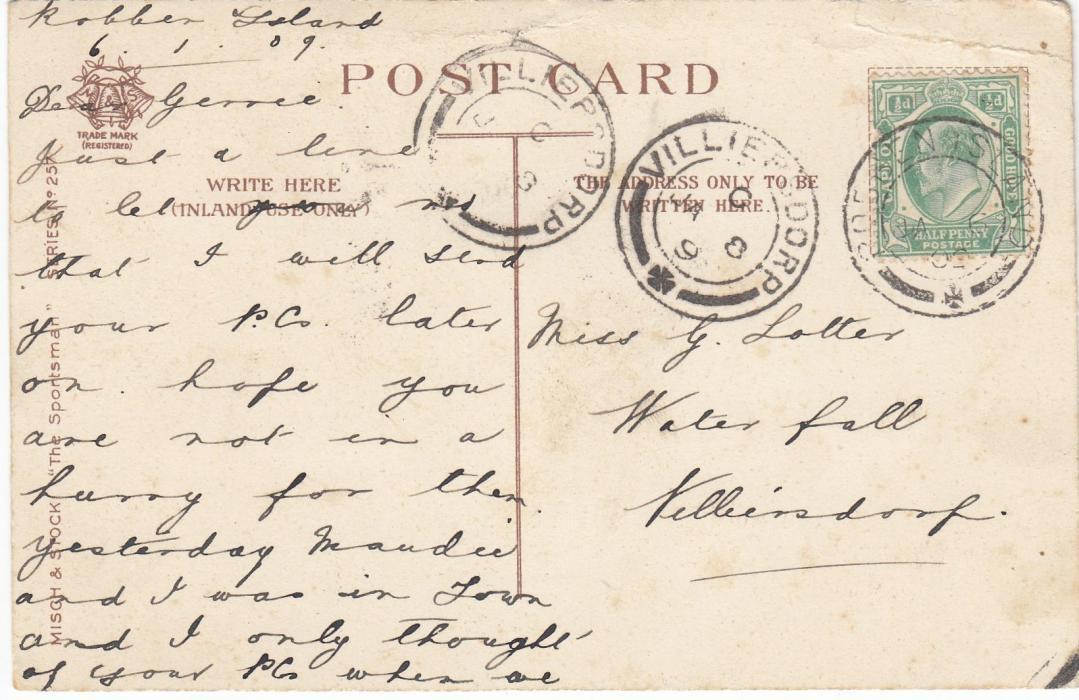 Robben Island
6. 1. 09.
Dear Gerree.
Just a line
to let you no
that I will send
your P.Cs. later
on. hope you
are not in a
hurry for them.
yesterday Maudie
and I was in Town
and I only thought
of your PCs when we
POST CARD
TRADE MARK
(REGISTERED)
WRITE HERE
(INLAND USE ONLY)
THE ADDRESS ONLY TO BE
WRITTEN HERE.
MISCH & STOCK "The Sportsman" SERIES Nº 25
VILLIERSDORP
VILLIERSDORP
½d ½d
CAPE OF GOOD HOPE
HALFPENNY
POSTAGE
Miss G. Lotter
Water fall
Villiersdorp.